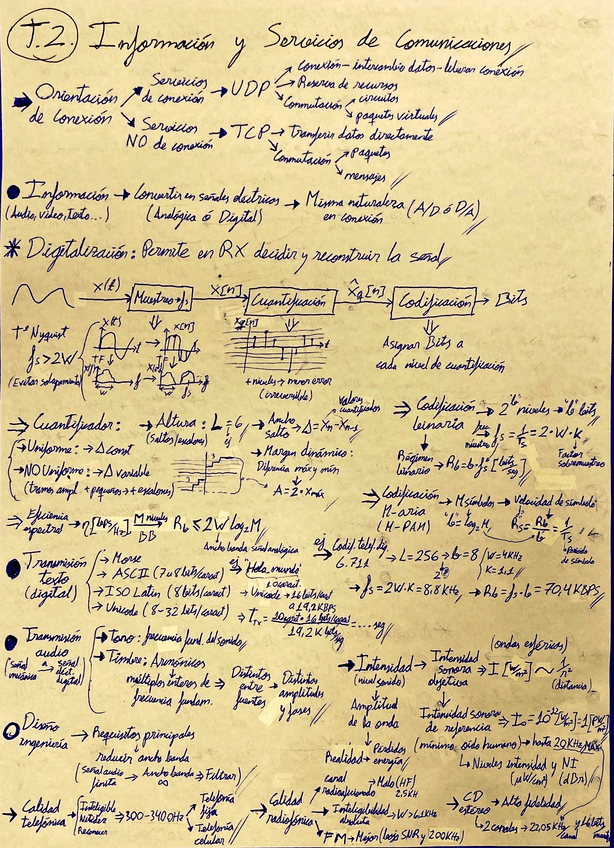 T.2. Información y Servicios de Comunicaciones
Orientación de conexión
Servicios de conexión → UDP
conexión - intercambio datos - liberar conexión
Reserva de recursos
Conmutación
circuitos
paquetes virtuales
Servicios NO de conexión → TCP → Transferir datos directamente
Conmutación
Paquetes
mensajes
Información → Convertir en señales eléctricas → Misma naturaleza (A/D ó D/A)
(Audio, video, texto...) (Analógica ó Digital) en conexión
* Digitalización: Permite en RX decidir y reconstruir la señal
x(t) Muestreo fs x[n] Cuantificación x̂q[n] Codificación → Bits
Tª Nyquist
fs > 2W
(Evitar solapamiento)
x(t) x[n]
TF TF
xq[n]
+ niveles → menor error
(irreversible)
Asignar Bits a
cada nivel de cuantificación
⇒ Cuantificador: → Altura: L = 6
(Saltos/escalones)
→ Ancho salto → Δ = Xn - Xn-1
valores cuantificados
Uniforme: → Δ const
NO Uniforme: → Δ variable
(tramos ampl. + pequeños → + escalones)
→ Margen dinámico:
Diferencia máx y mín
A = 2·Xmáx
⇒ Codificación binaria → 2^b niveles → "b" bits
fs = 1/Ts = 2·W·K
Factor sobremuestreo
Régimen binario → Rb = b·fs [bits/seg]
⇒ Codificación M-aria (M-PAM) → M símbolos → Velocidad de símbolo
b = log2 M, Rs = Rb/b = 1/Ts
Periodo de símbolo
⇒ Eficiencia espectral → η [bps/Hz] M niveles BB Rb ≤ 2W log2 M
Ancho banda señal analógica
ej Codif. telef. dig. G.711 → L = 256 → b = 8
W = 4KHz
K = 1.1
→ fs = 2W·K = 8,8 KHz → Rb = fs·b = 70,4 KBPS
Transmisión texto (digital)
→ Morse
→ ASCII (7 u 8 bits/caract)
→ ISO Latin (8 bits/caract)
→ Unicode (8-32 bits/caract)
ej "Hola mundo"
10 caract.
→ Unicode → 16 bits/caract
a 19,2 KBPS
→ tTx = 10 caract · 16 bits/caract / 19,2 K bits/seg = .... seg
Transmisión audio
(señal mecánica → señal eléct. digital)
→ Tono: frecuencia fund. del sonido
→ Timbre: Armónicos
múltiplos enteros de frecuencia fundam. ⇒ Distintos entre fuentes → Distintas amplitudes y fases
→ Intensidad (nivel sonido)
Amplitud de la onda
Perdidas energía
→ Intensidad sonora objetiva ⇒ I [W/m²] ~ 1/r²
(ondas esféricas)
(distancia)
Intensidad sonora de referencia ⇒ Io = 10^-12 [W/m²] = 1 [pW/m²]
(mínimo oído humano) → hasta 20KHz
↳ Niveles intensidad y NI
(μW/cm²) (dBr)
Diseño ingeniería → Requisitos principales
reducir ancho banda
(señal audio finita → Ancho banda ∞ ⇒ Filtrar)
Realidad
→ Calidad telefónica
Inteligible
Nitidez
Reconocer
⇒ 300-3400Hz
Telefonía fija
Telefonía celular
→ Calidad radiofónica
canal radiodifundido → Malo (HF) 2.5KH
Inteligibilidad absoluta → W > 6.1KHz
FM → Mejor (bajo SNR y 200KHz)
→ CD estéreo → Alta fidelidad
→ 2 canales → 22,05 KHz/canal y 16 bits